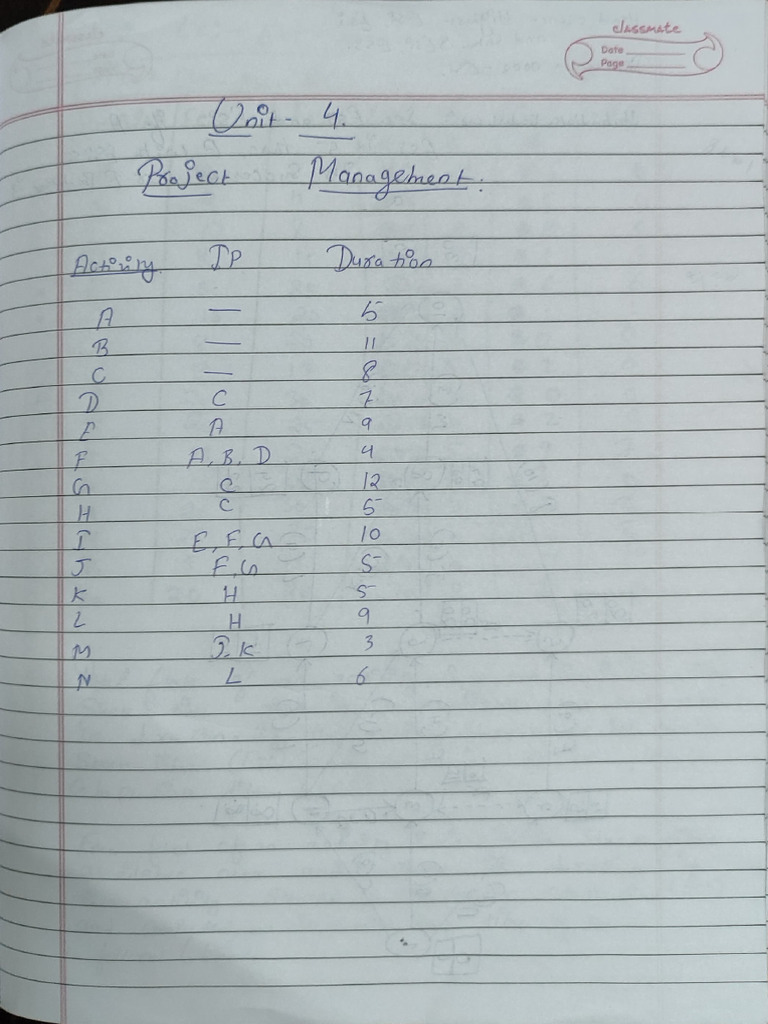 classmate
Date
Page
Unit - 4.
Project Management.
Activity IP Duration
A — 5
B — 11
C — 8
D C 7
E A 9
F A, B, D 4
G C 12
H C 5
I E, F, G 10
J F, G 5
K H 5
L H 9
M I, K 3
N L 6